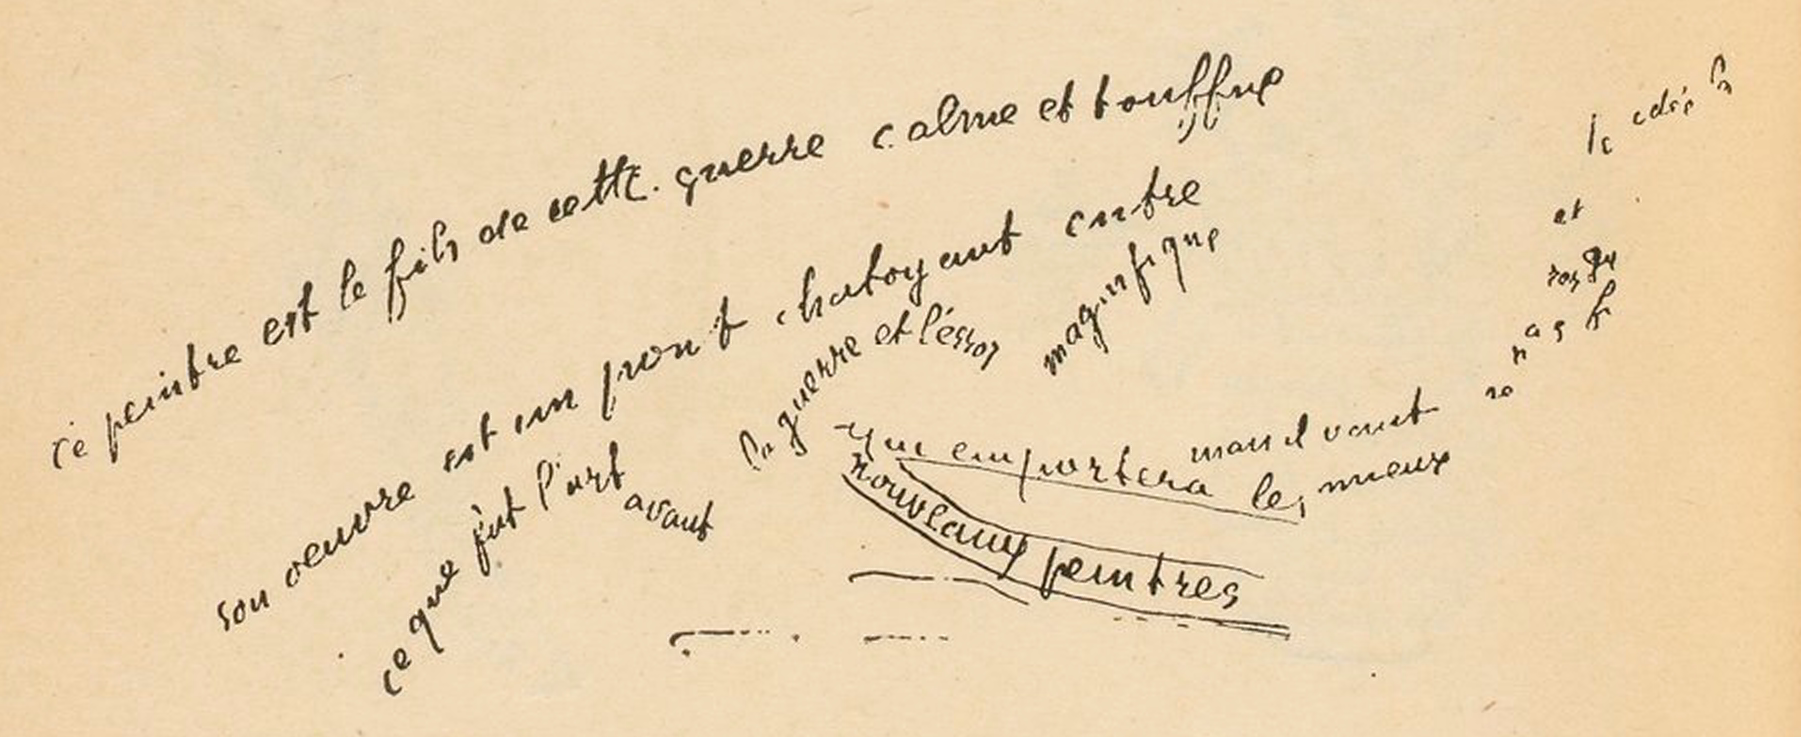 ce peintre est le fils de cette guerre calme et touffue
son oeuvre est un pont chatoyant entre
ce que fut l'art avant
la guerre et l'éssor
magnifique
qui emportera les
nouveaux peintres
mais il vaut
mieux
et